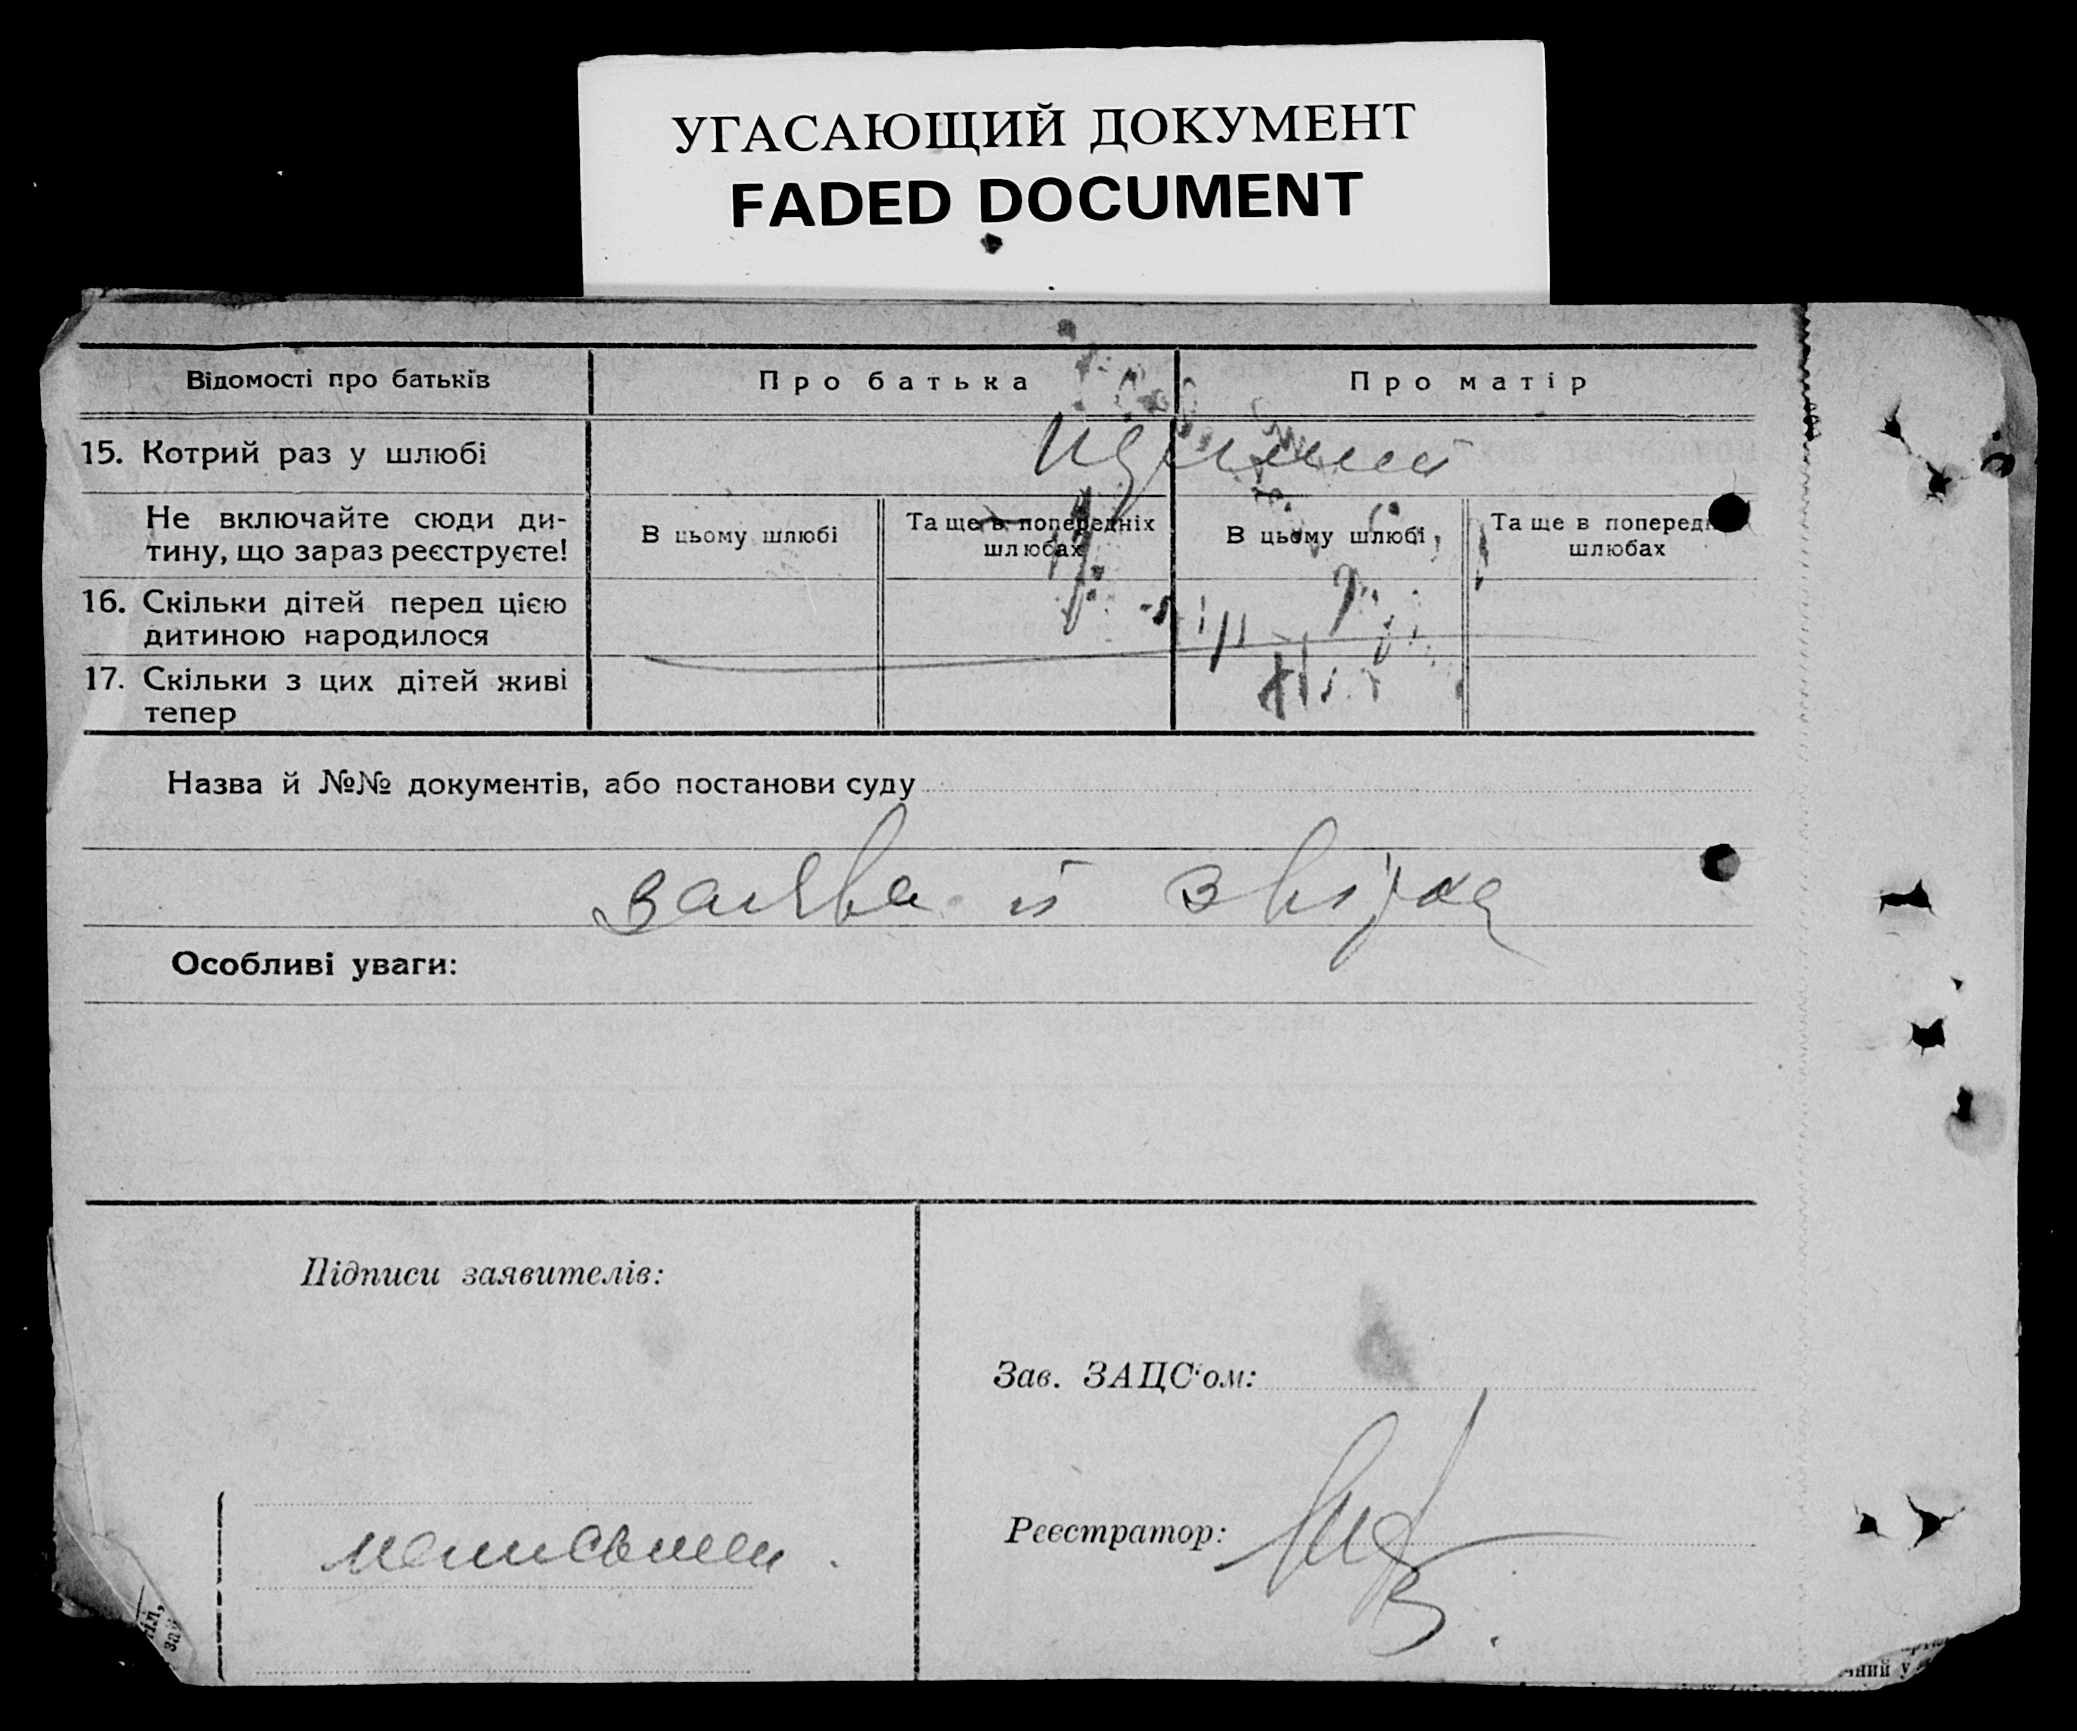 УГАСАЮЩИЙ ДОКУМЕНТ
FADED DOCUMENT
Відомості про батьків
Про батька
Про матір
15. Котрий раз у шлюбі
Не включайте сюди ди-
тину, що зараз реєструєте!
В цьому шлюбі
Та ще в попередніх
шлюбах
В цьому шлюбі
Та ще в поперед
шлюбах
16. Скільки дітей перед цією
дитиною народилося
17. Скільки з цих дітей живі
тепер
Назва й №№ документів, або постанови суду
заява й
Особливі уваги:
Підписи заявителів:
Зав. ЗАЦС'ом:
Реєстратор: